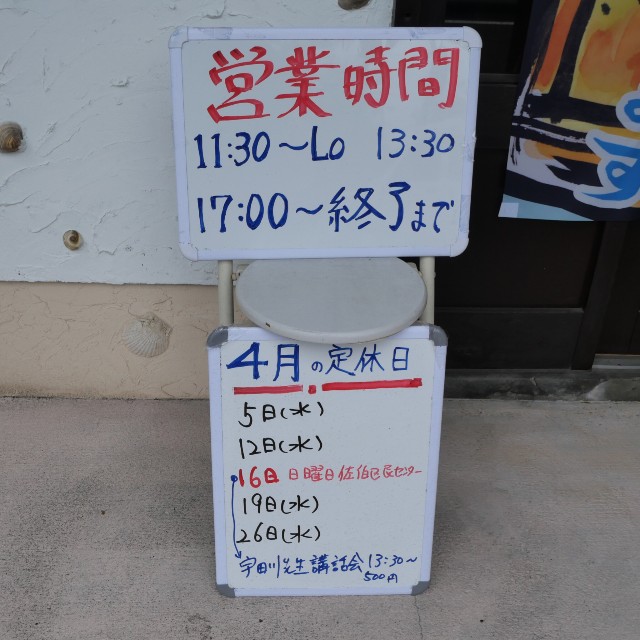 営業時間
11:30～Lo 13:30
17:00～終了まで
4月の定休日
5日(水)
12日(水)
16日 日曜日佐伯区民センター
19日(水)
26日(水)
宇田川先生講話会13:30～
500円
す